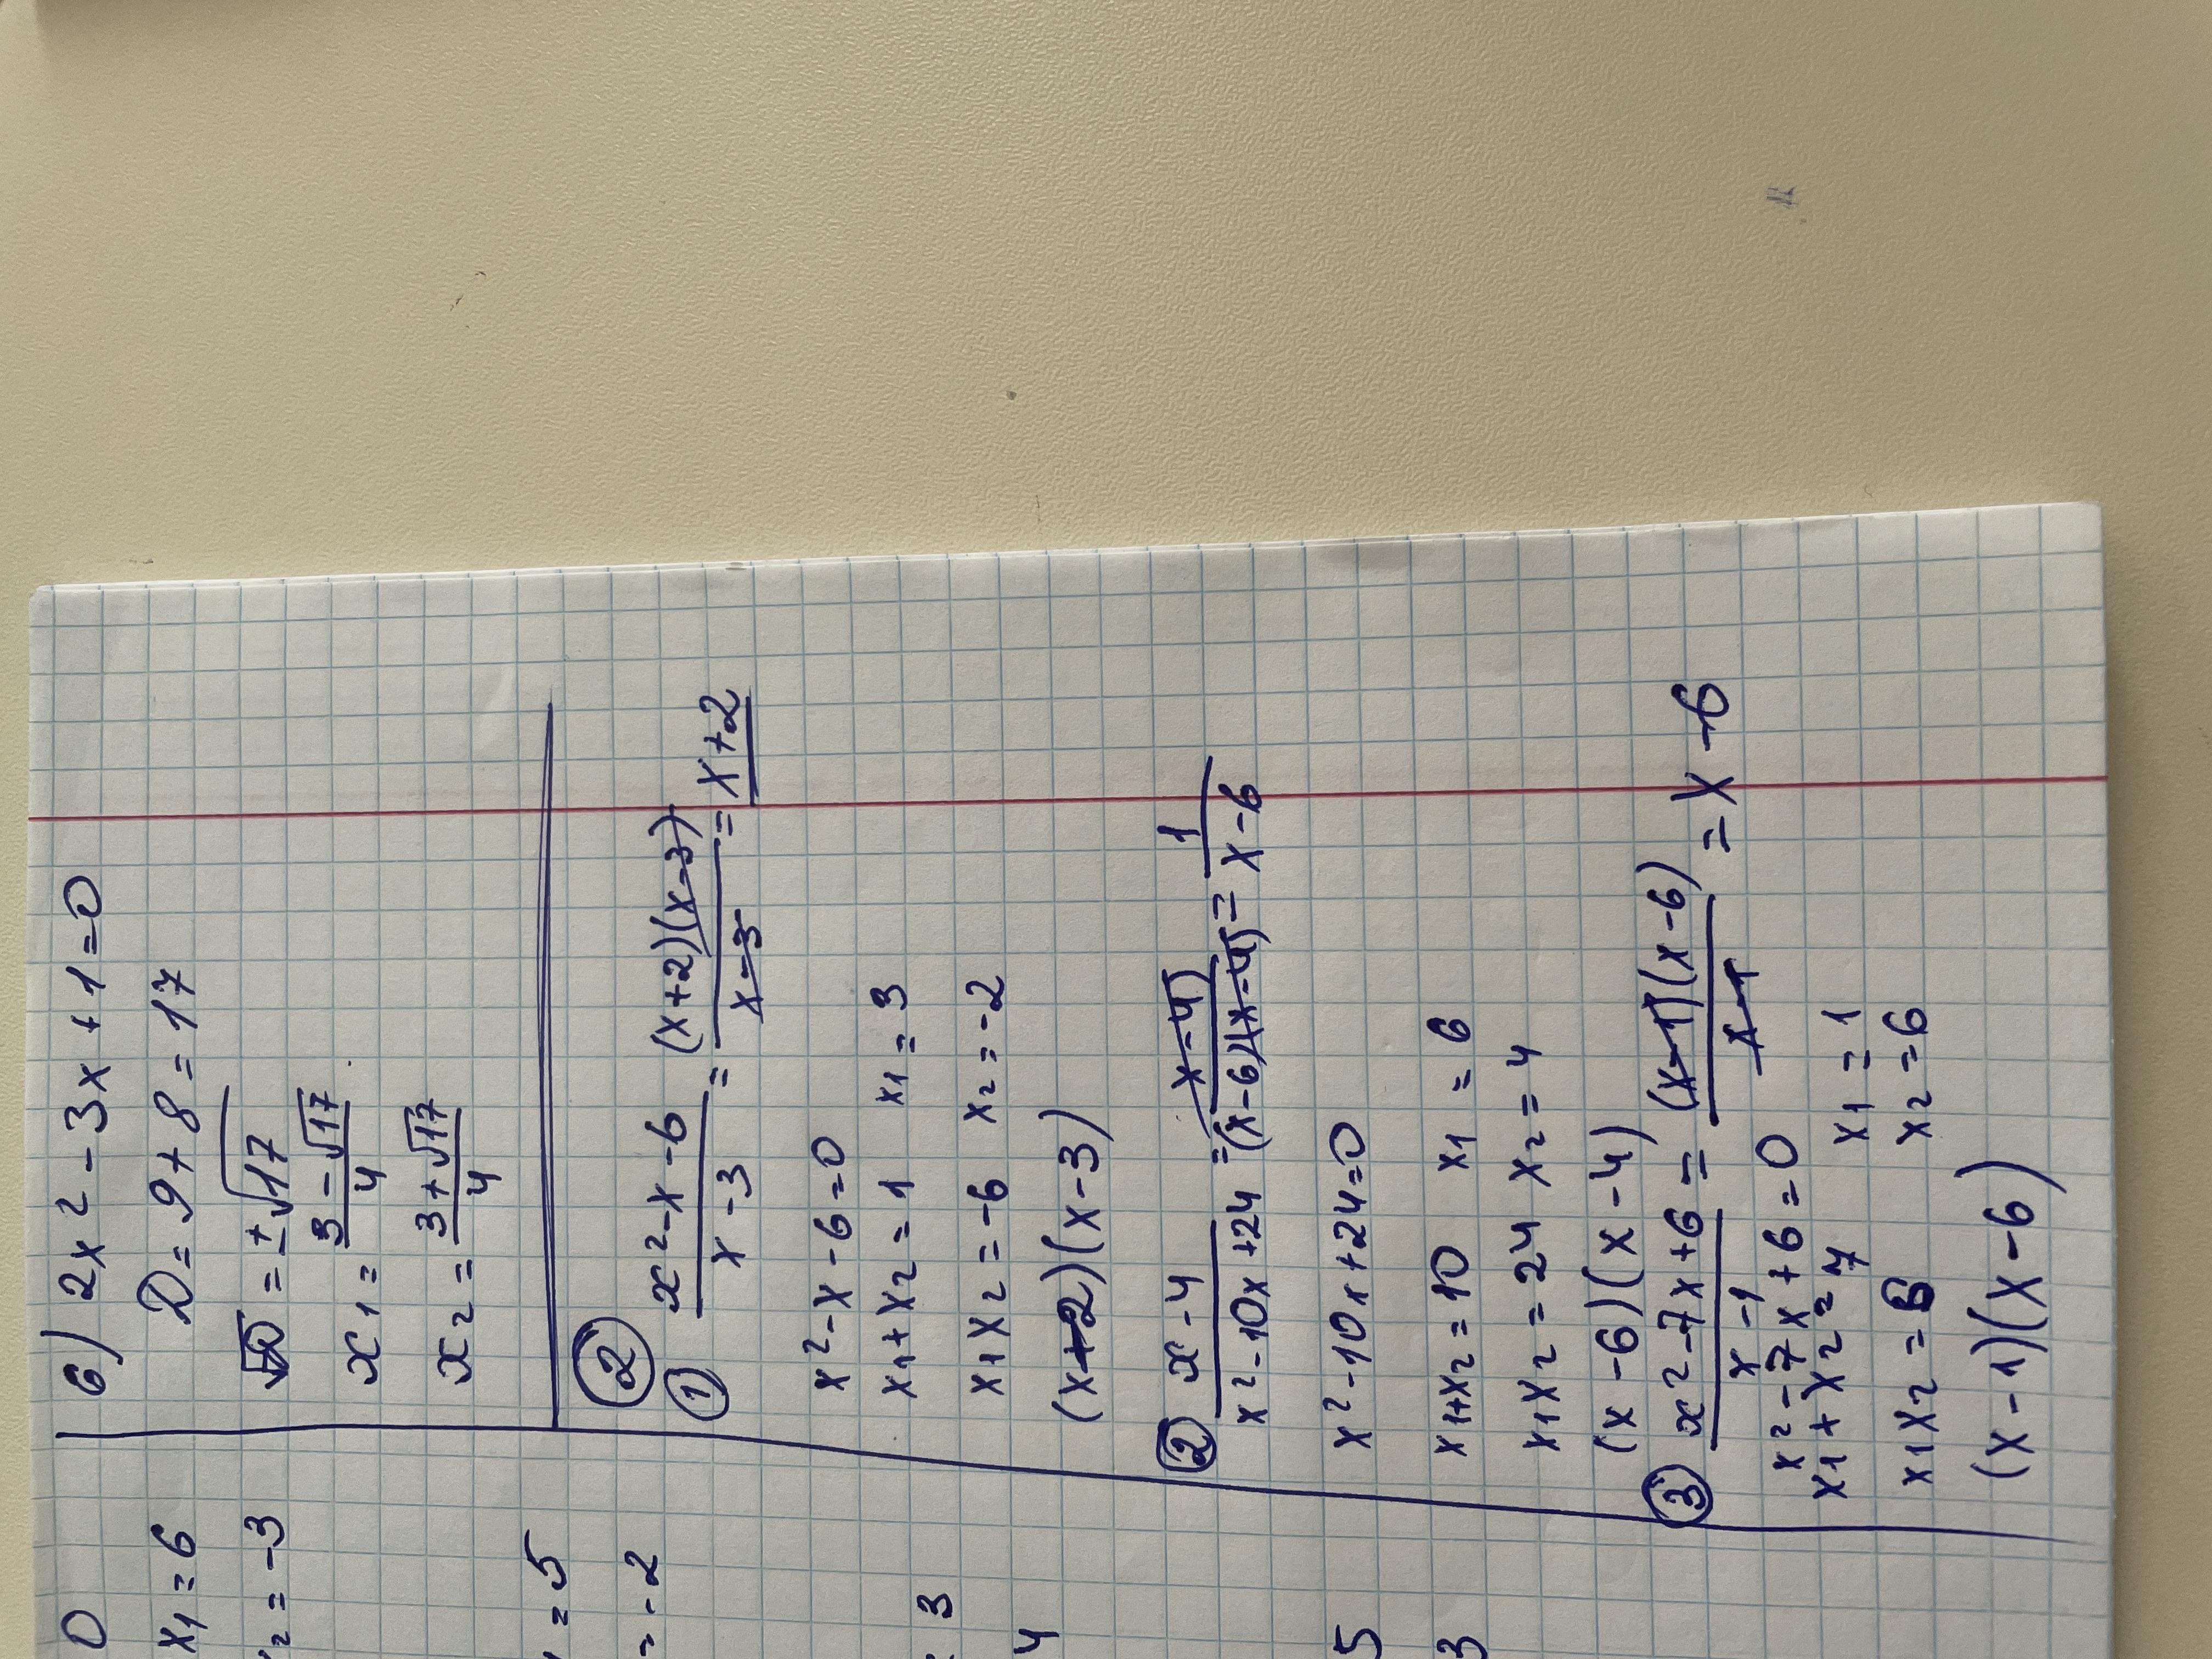 0
x1 = 6
2 = -3
= 5
= -2
3
4
5
3
6) 2x² - 3x + 1 = 0
D = 9 + 8 = 17
√D = ±√17
x1 = (3 - √17)/4
x2 = (3 + √17)/4
②
① (x² - x - 6)/(x - 3) = ((x+2)(x-3))/(x-3) = x+2
x² - x - 6 = 0
x1 + x2 = 1 x1 = 3
x1x2 = -6 x2 = -2
(x+2)(x-3)
② (x - 4)/(x² - 10x + 24) = (x-4)/((x-6)(x-4)) = 1/(x-6)
x² - 10x + 24 = 0
x1+x2 = 10 x1 = 6
x1x2 = 24 x2 = 4
(x-6)(x-4)
③ (x² - 7x + 6)/(x - 1) = ((x-1)(x-6))/(x-1) = x - 6
x² - 7x + 6 = 0
x1 + x2 = 7 x1 = 1
x1x2 = 6 x2 = 6
(x-1)(x-6)